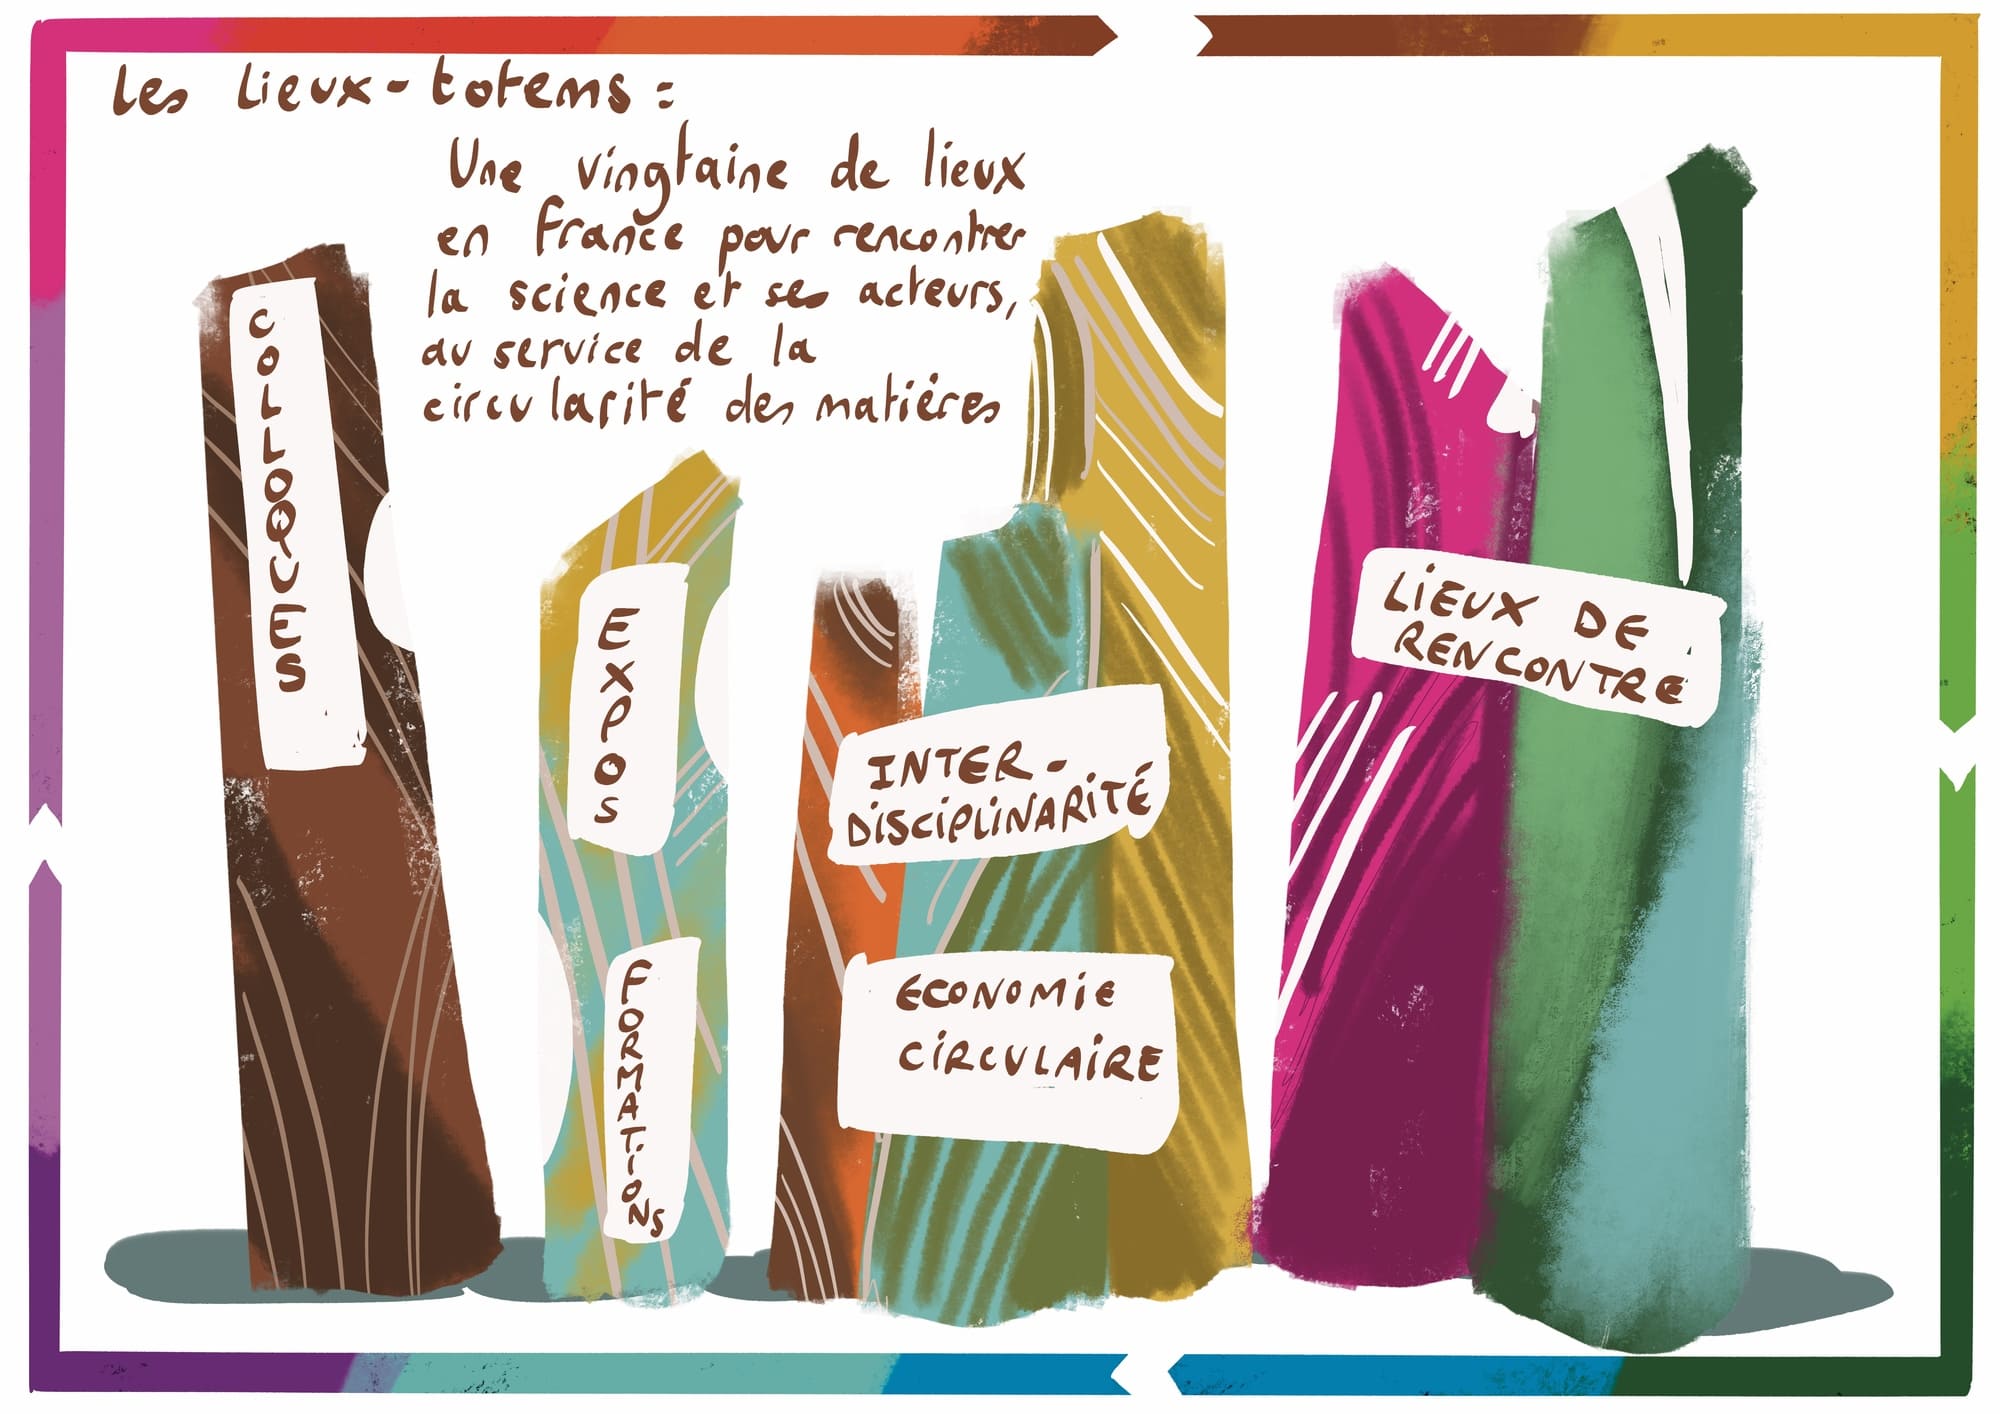 Les Lieux-totems :
Une vingtaine de lieux
en France pour rencontrer
la science et ses acteurs,
au service de la
circularité des matières
COLLOQUES
EXPOS
FORMATIONS
INTER-
DISCIPLINARITÉ
ECONOMIE
CIRCULAIRE
LIEUX DE
RENCONTRE